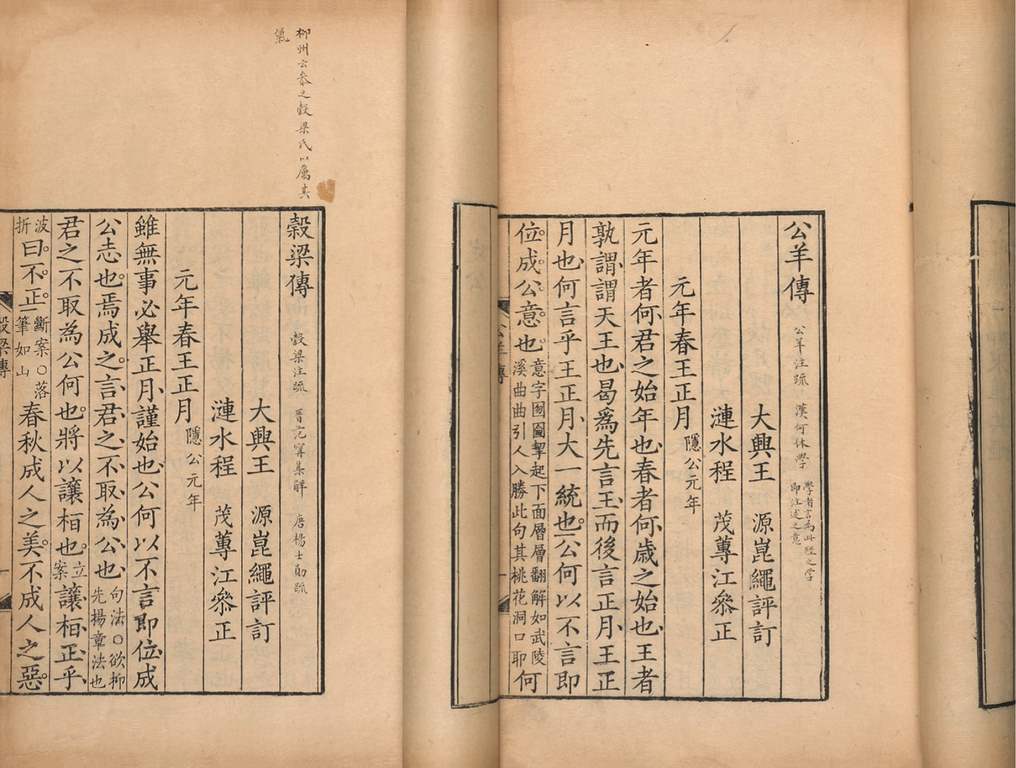 公羊傳 公羊注疏 漢何休學 學者言為此經之學即注述之意
大興王 源崑繩評訂
漣水程 茂蓴江叅正
元年春王正月隱公元年
元年者何君之始年也春者何歲之始也王者
孰謂謂天王也曷爲先言王而後言正月王正
月也何言乎王正月大一統也公何以不言即
位成公意也意字囫圇擊起下面層層翻解如武陵溪曲曲引人入勝此句其桃花洞口耶何
公羊傳 一
柳州云叅之穀梁氏以厲其
氣
穀梁傳 穀梁注疏 晉范甯集解 唐楊士勛疏
大興王 源崑繩評訂
漣水程 茂蓴江叅正
元年春王正月隱公元年
雖無事必舉正月謹始也公何以不言即位成
公志也焉成之言君之不取為公也句法○欲抑先揚章法也
君之不取為公何也將以讓桓也立案讓桓正乎
波折曰不正斷案○落筆如山春秋成人之美不成人之惡
穀梁傳 一